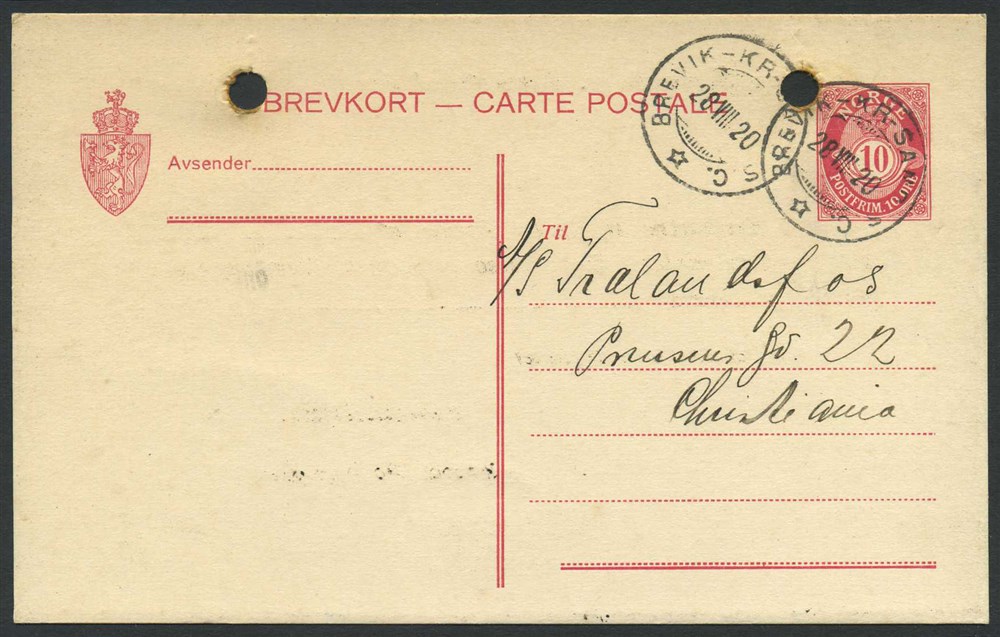 BREVKORT — CARTE POSTALE
BREVIK-KR.S
28 VIII 20
C.
BREVIK-KR.SAN
28 VIII 20
C.
NORGE
10
POSTFRIM. 10 ØRE
Avsender
Til
A/S Tralandsfos
22
Christiania